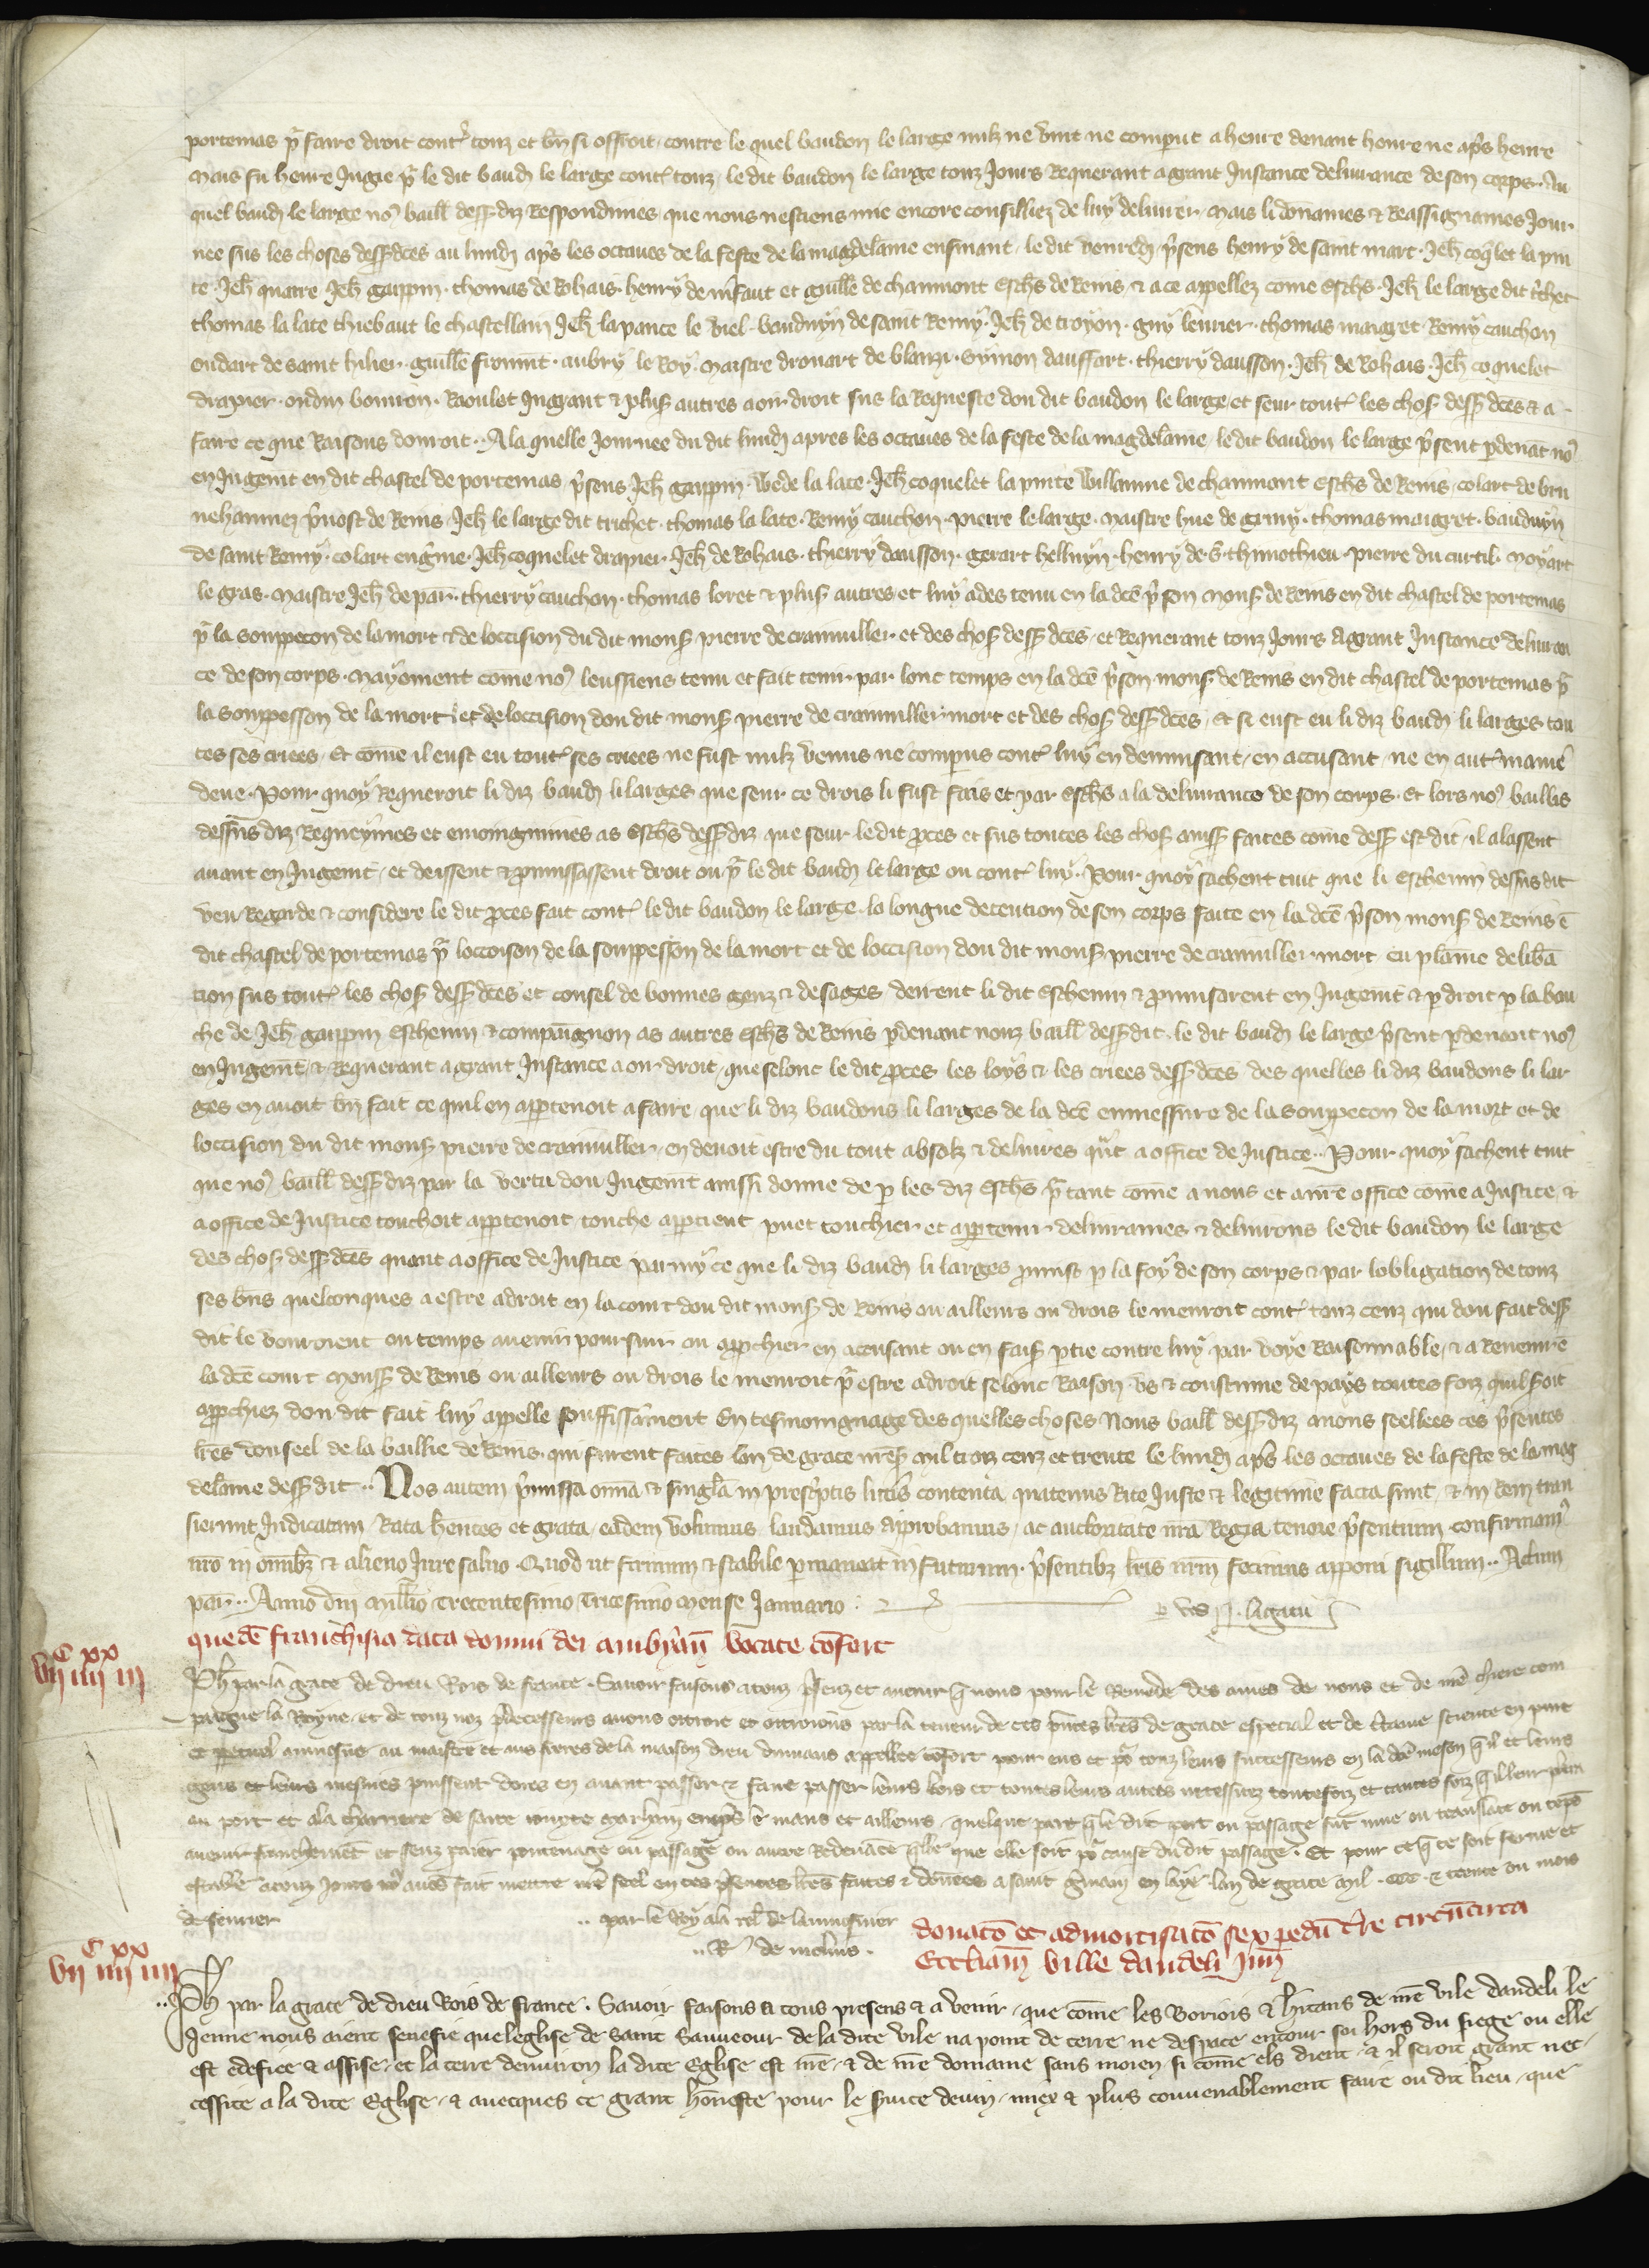 portemas pr faire droit contr touz et bn si offroit contre le quel baudon le large nulz ne vint ne comput a heure devant heure ne aps heure
Mais fu heure Jugie pr le dit baud le large contr touz le dit baudon le large touz Jours Requerant a grant Instance delivrance de son corps. Au
quel baud le large nos baill dessdiz Respondimes que nous nestiens mie encore consilliez de luy delivrer Mais li donames & Reassignames Jour
nee sus les choses dessdces au lundi aps les octaves de la feste de la magdelaine ensivant le dit vendredi psens henry de saint mart. Jeh coqlet la pin
te. Jeh quatre Jeh garppin. thomas de Rohais. henry de et guille de chaumont eschs de Reins & a ce appellez come eschs. Jeh le large dit trichet
thomas la late thiebaut le chastellain Jeh la pance le viel. bauduyn de saint Remy. Jeh de troyon. guy levrier. thomas maigret. Remy cauchon
oudart de saint hilier. guille fromt. aubry le Roy. Maistre drouart de blanzi. Symon daussart. thierry dausson. Jeh de Rohais. Jeh coquelet
drapier. oudin bouron. Raoulet Ingrant & plus autres a oir droit sus la Requeste dou dit baudon le large et seur toutes les chos dessdces & a
faire ce que Raisons donroit. A la quelle Journee du dit lundi apres les octaves de la feste de la magdelaine le dit baudon le large psent pdevat nos
en Jugemt en dit chastel de portemas psens Jeh garppin. Wede la late. Jeh coquelet la pinte Willaume de chaumont eschs de Reins colart de bru
nehamez pvost de Reins Jeh le large dit trichet. thomas la late. Remy cauchon. pierre le large. Maistre hue de germy. thomas maigret. bauduyn
de saint Remy. colart engme. Jeh coquelet drapier. Jeh de Rohais. thierry dausson. gerart helluyn. henry de S. thimothieu. pierre du curtil. noyart
le gras. Maistre Jeh de par. thierry cauchon. thomas loret & plus autres et luy ades tenu en la dce pson Mons de Reins en dit chastel de portemas
pr la souppecon de la mort & de loccision du dit mons pierre de cramiller. et des chos dessdces. et Requerant touz Jours a grant Instance delivran
ce de son corps. Mayoment come nos leussiens tenu et fait tenir par lonc temps en la dce pson mons de Reins en dit chastel de portemas pr
la souppesson de la mort et de loccision dou dit mons pierre de cramiller mort et des chos dessdces. et si eust eu li diz baud li larges tou
tes ses criees. Et come il eust eu toutes ses criees ne fust nulz venus ne compus contr luy en denunsant en accusant ne en autr manie
deue. Pour quoy Requeroit li diz baud li larges que seur ce drois li fust fais et par eschs a la delivrance de son corps. et lors nos baillis
dessus diz Requeymes et enioingnimes as eschs dessdiz que seur le dit pces et sus toutes les chos ainss faites come dess est dit il alassent
avant en Jugemt. et deissent & pnunssassent droit ou pr le dit baud le large ou contr luy. Pour quoy sachent tuit que li eschevin dessus dit
veu Regarde & considere le dit pces fait contr le dit baudon le large. la longue detention de son corps faite en la dce pson mons de Reins e
dit chastel de portemas pr loccoison de la souppesson de la mort et de loccision dou dit mons pierre de cramiller mort eu plaine deliba
tion sus toutes les chos dessdces et consel de bonnes genz & de sages deirent li dit eschevin & pnunsarent en Jugemt & p droit p la bou
che de Jeh garppin eschevin & compaignon as autres eschs de Reins pdevant nouz baill dessdit. le dit baud le large psent pdevant nos
en Jugemt & Requerant a grant Instance a oir droit que selonc le dit pces les loys & les criees dessdces des quelles li diz baudons li lar
ges en avoit bn fait ce quil en apptenoit a faire que li diz baudons li larges de la dce enmessure de la souppecon de la mort et de
loccision du dit mons pierre de cramiller en devoit estre du tout absolz & delivres qnt a office de Justice. Pour quoy sachent tuit
que nos baill dessdiz par la vertu dou Jugemt ainssi donne de p les diz eschs pr tant come a nous et a nre office come a Justice &
a office de Justice touchoit apptenoit touche apptient puet touchier et apptenir delivrames & delivrons le dit baudon le large
des chos dessdces quant a office de Justice parmy ce que li diz baud li larges pmist p la foy de son corps & par lobligation de touz
ses bns quelconques a estre a droit en la court dou dit mons de Reins ou ailleurs ou drois le menroit contr touz ceuz qui dou fait dess
dit le vouroient ou temps avenir poursuir ou appchier en accusant ou en fais ptie contre luy par voye Raisonnable. & a Revenir e
la dce court Monss de Reins ou ailleurs ou drois le menroit pr estre a droit selonc Raison us & coustume de pays toutes foiz quil soit
appchiez dou dit fait luy appelle souffissament En tesmoingnage des quelles choses Nous baill dessdiz avons seellees ces psentes
lres dou seel de la baillie de Reins. qui furent faites lan de grace nres mil troiz cenz et trente le lundi aps les octaves de la feste de la mag
delaine dessdit.. Nos autem pmissa omia & singla in prescptis littis contenta quatenus Rite Juste & legitime facta sunt & in Rem tran
sierunt Judicatam Rata hentes et grata eadem volumus laudamus approbamus ac auctoritate nra Regia tenore psentium confirmam
nro in omibz & alieno Jure salvo. Quod ut firmum & stabile pmaneat in futurum. psentibz lris nrm fecimus apponi sigillum.. Actum
par.. Anno dni Millio Trecentesimo Tricesimo Mense Januario
p vos ligatu
C XX
VII IIII III
quede franchisia data domui dei ambian vocate cofort
Ph par la grace de dieu Rois de france. Savoir faisons a touz psenz et avenir q nous pour le Remede des ames de nous et de nre chiere com
paigne la Royne et de touz noz pdecesseurs avons ottroie et ottroions par la teneur de ces pntes lres de grace especial et de ctaine science en pure
et ppetuel aumosne au maistre et aus freres de la maison dieu appellee cofort pour eus et pr touz leurs successeurs en la dce meson et leurs
gens et leurs mesnies puissent dores en avant passer & faire passer leurs bois et toutes leurs autres necessitez toutefoiz et tantes foiz q
au port et a la charriere de sainte et ailleurs quelque part q le dit port ou passage fut mue ou translate ou teps
avenir franchemet et senz paier pontenage ou passage ou autre Redevace qlle que elle soit pr cause du dit passage. Et pour ce q ce soit ferme et
estable a touz Jours nos avos fait mettre nre seel en ces psentes lres faites & donees a saint gmain en laye lan de grace Mil. CCC. & trente ou mois
de fevrier
.. par le Roy a la rel de laumosnier
.. R de molins.
donato et admortisato sex pedu tre circucirca
Eccliam ville dandeli Jun
C XX
VII IIII IIII
..Ph par la grace de dieu Rois de france. Savoir faisons a tous presens & a venir. que come les Boriois & hitans de nre vile dandeli le
Jenne nous aient senefie que leglise de Saint Sauveour de la dite vile na point de terre ne despace entour soi hors du siege ou elle
est edefiee & assise. et la terre denviron la dite Eglise est nre. & de nre domaine sans moien si come els dient. & il seroit grant nec
cessite a la dite Eglise. & avecques ce grant honeste pour le svice devin. miex & plus convenablement faire ou dit lieu. que